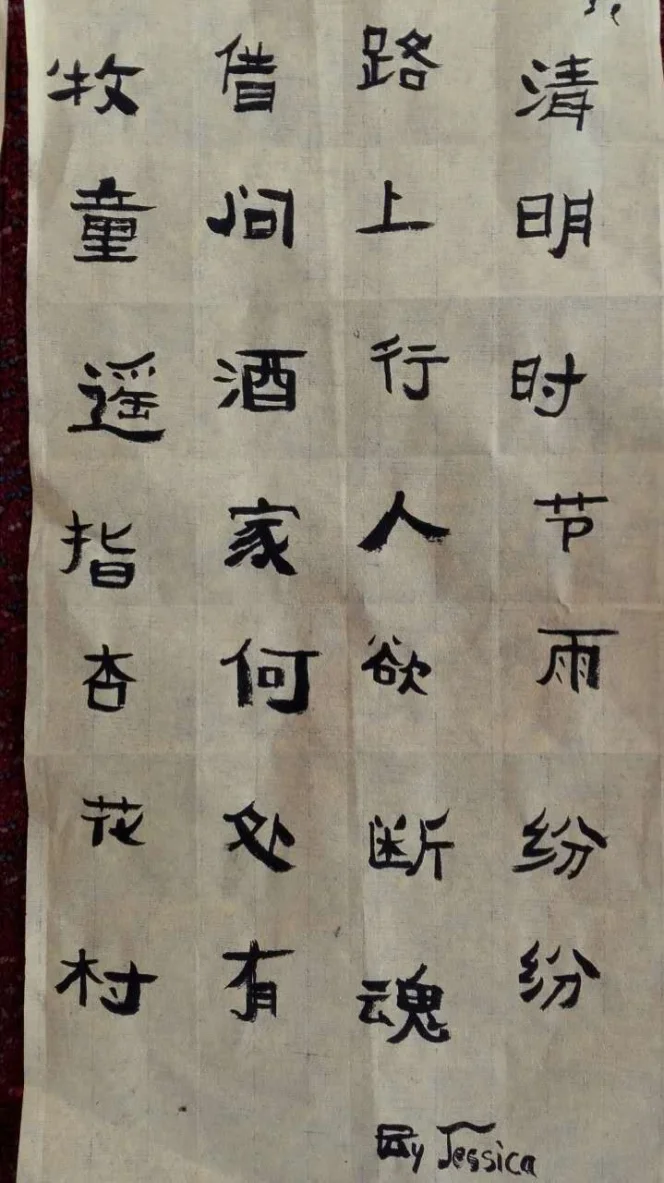 清明时节雨纷纷
路上行人欲断魂
借问酒家何处有
牧童遥指杏花村
By Jessica